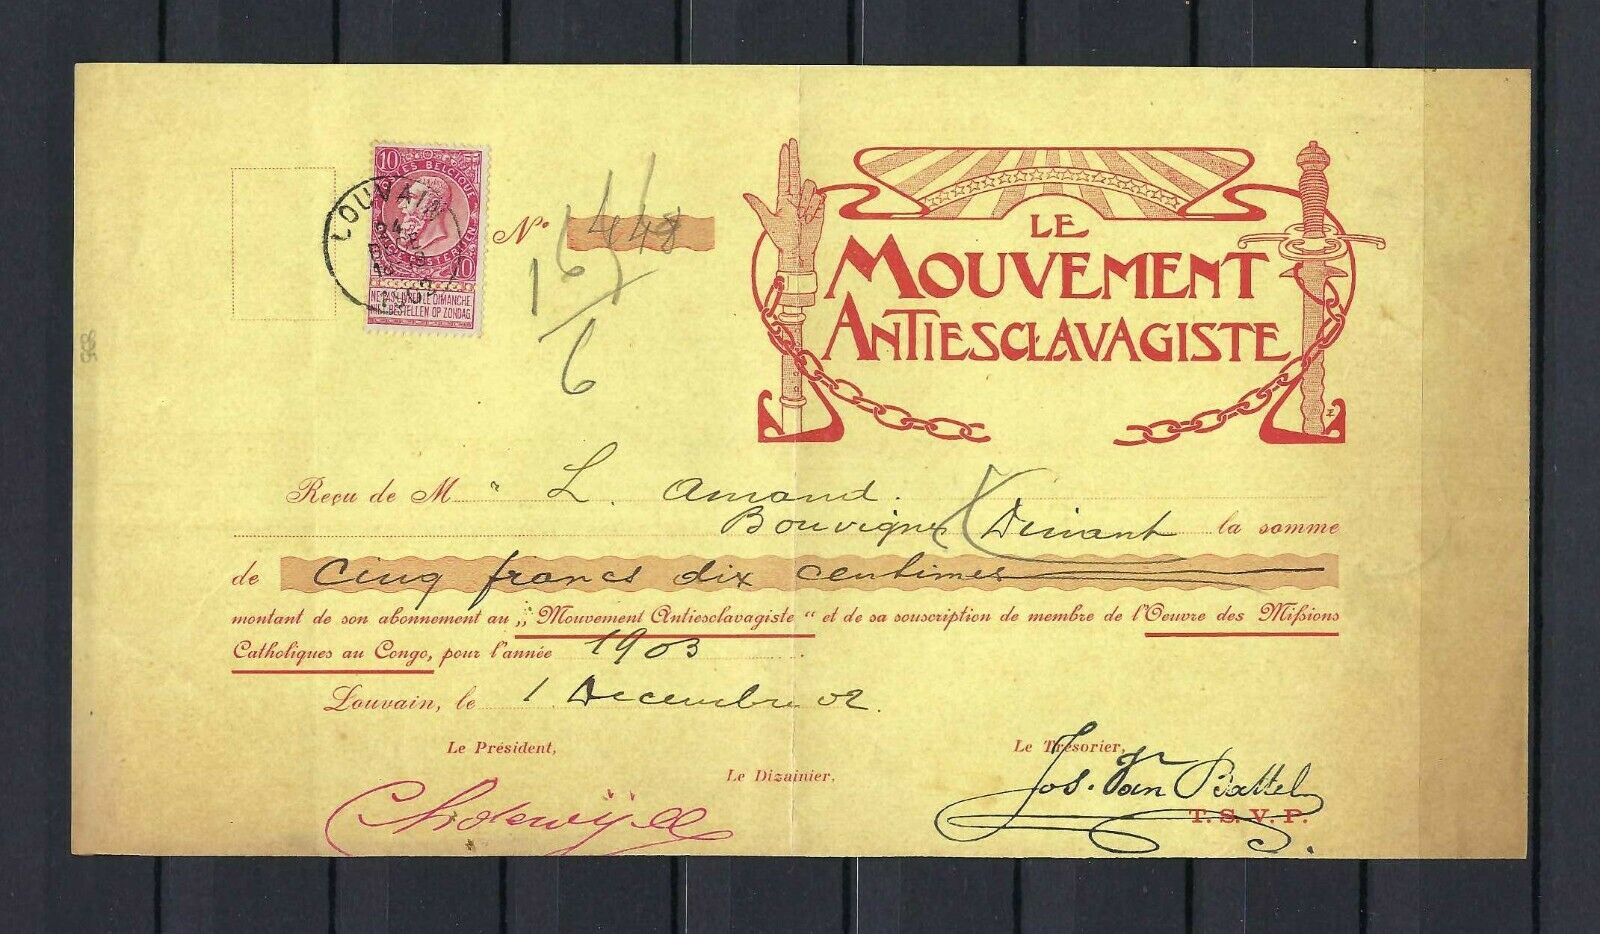 10 10
POSTES BELGIQUE
BELGIE POSTERIJEN
NE PAS LIVRER LE DIMANCHE
NIET BESTELLEN OP ZONDAG
LOUVAIN
1903
Nº 448
16
6
LE
MOUVEMENT
ANTIESCLAVAGISTE
Reçu de M " L. Amand.
Bouvignes Dinant la somme
de cinq francs dix centimes
montant de son abonnement au „Mouvement Antiesclavagiste“ et de sa souscription de membre de l'Oeuvre des Mißions
Catholiques au Congo, pour l'année 1903
Louvain, le 1 Decembre 02.
Le Président,
Le Trésorier,
Le Dizainier,
Jos. Van Battel
T. S. V. P.